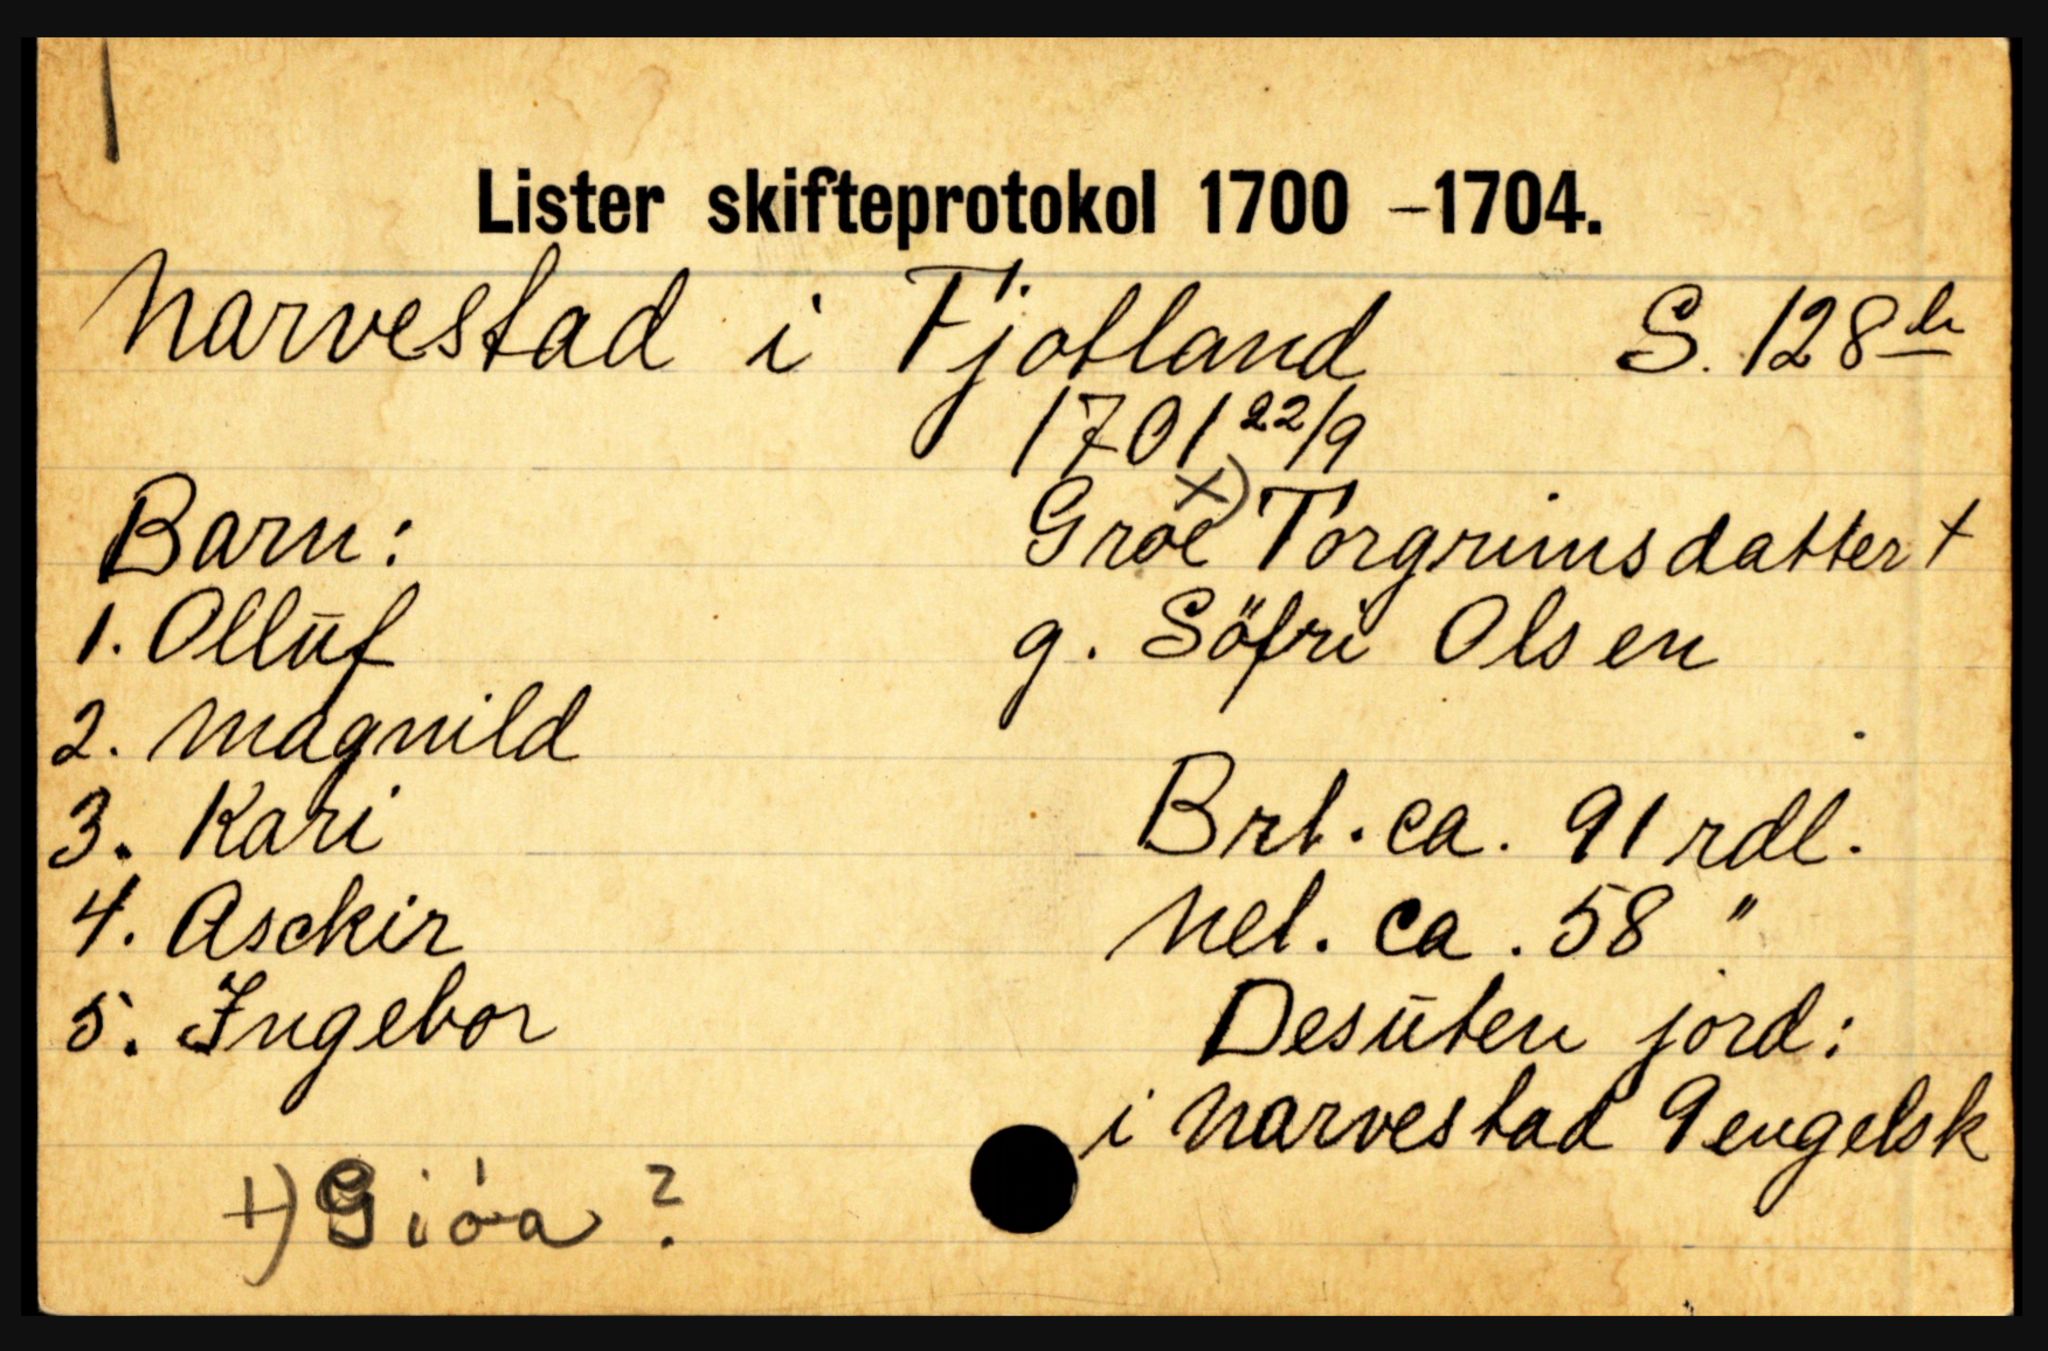 Lister skifteprotokol 1700 –1704.
Narvestad i Fjotland S. 128 b
1701 22/9
Groe x) Torgrimsdatter †
g. Söfri Olsen
Barn:
1. Ollūf
2. Magnild
3. Kari
4. Asckir
5. Ingebor
Brt. ca. 91 rdl.
Net. ca. 58 "
Desūten jord:
i Narvestad 9 engelsk
+) Gióa ?